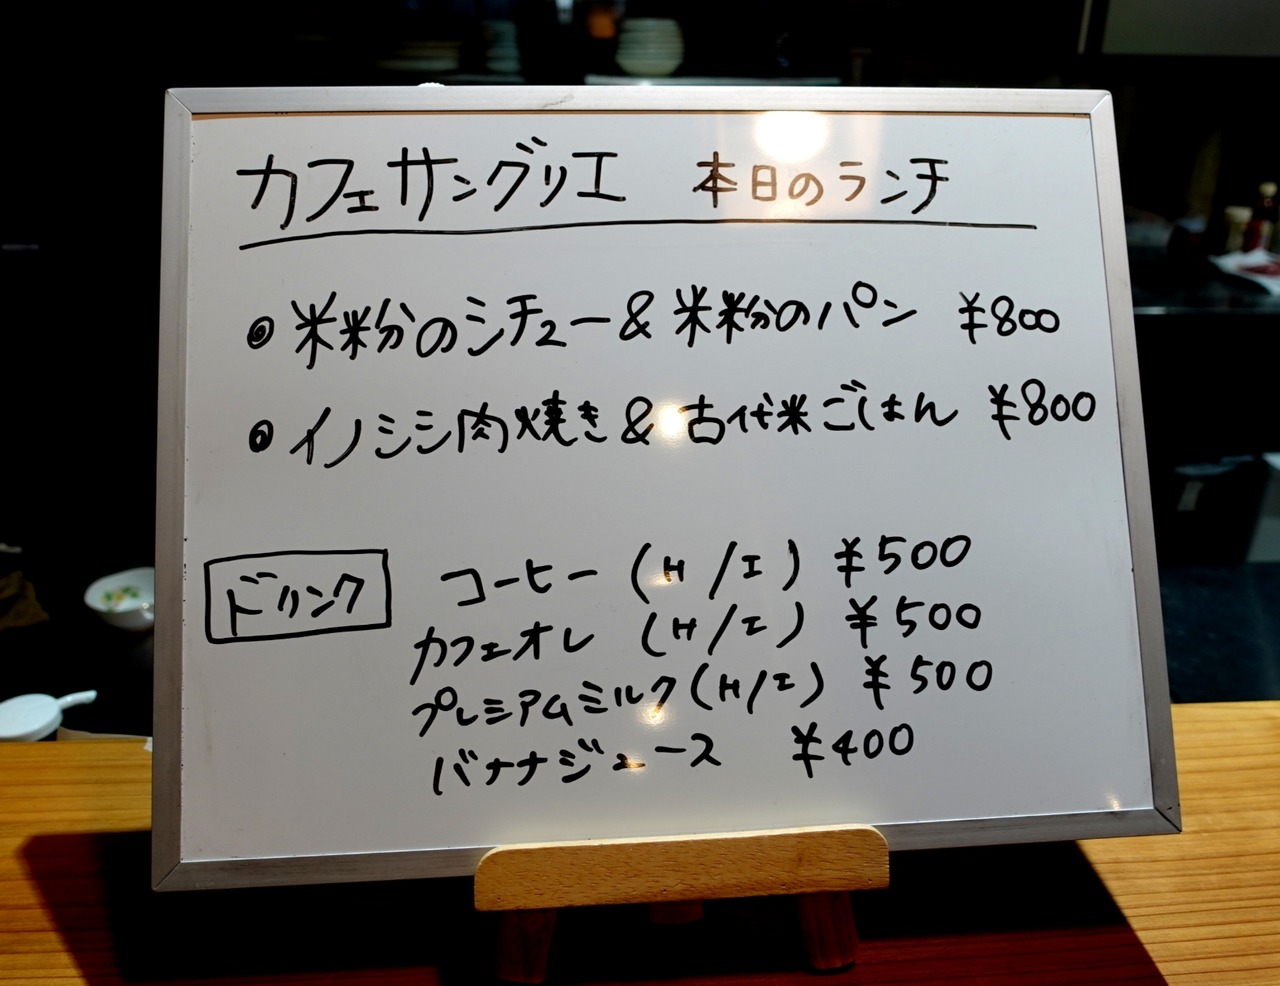 カフェサングリエ 本日のランチ
◎ 米粉のシチュー & 米粉のパン ¥800
◎ イノシシ肉焼き & 古代米ごはん ¥800
ドリンク コーヒー (H/I) ¥500
カフェオレ (H/I) ¥500
プレミアムミルク (H/I) ¥500
バナナジュース ¥400